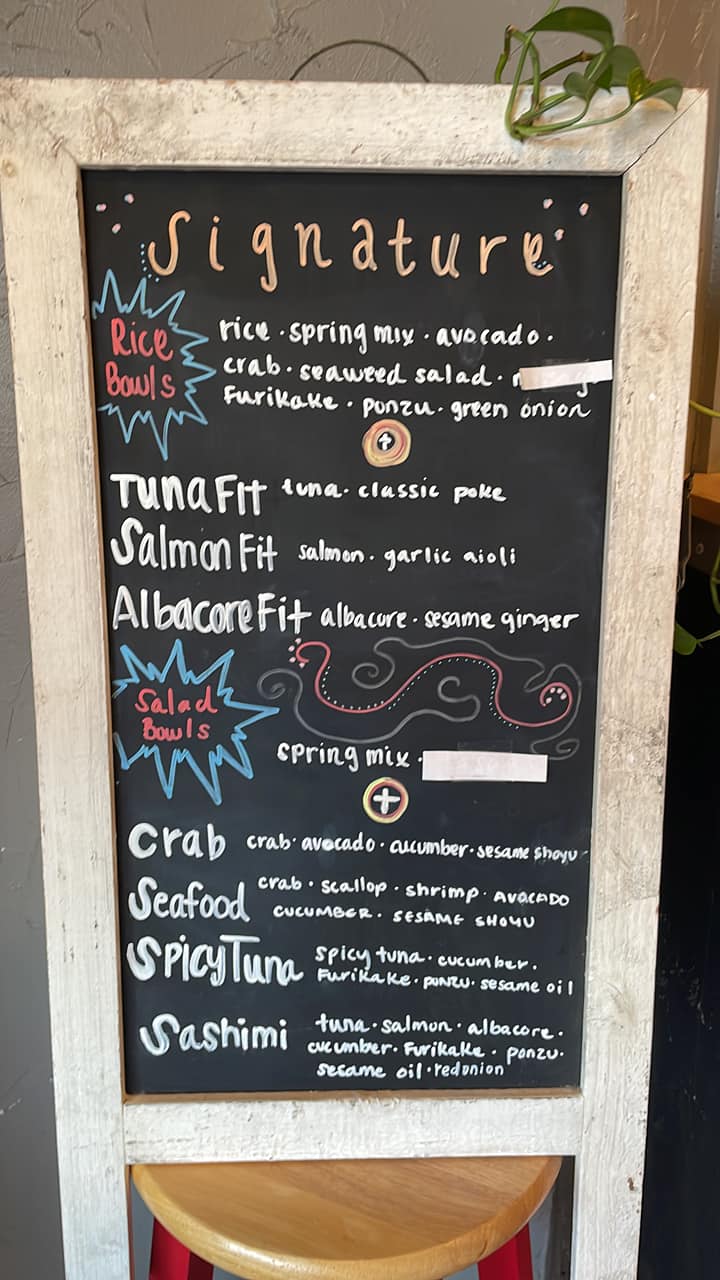 Signature
Rice
Bowls
rice · spring mix · avocado ·
crab · seaweed salad ·
Furikake · ponzu · green onion
+
Tuna Fit tuna · classic poke
Salmon Fit salmon · garlic aioli
Albacore Fit albacore · sesame ginger
Salad
Bowls
spring mix ·
+
Crab crab · avocado · cucumber · sesame shoyu
Seafood crab · scallop · shrimp · AVOCADO
CUCUMBER · SESAME SHOYU
Spicy Tuna spicy tuna · cucumber ·
Furikake · ponzu · sesame oil
Sashimi tuna · salmon · albacore ·
cucumber · Furikake · ponzu ·
sesame oil · red onion